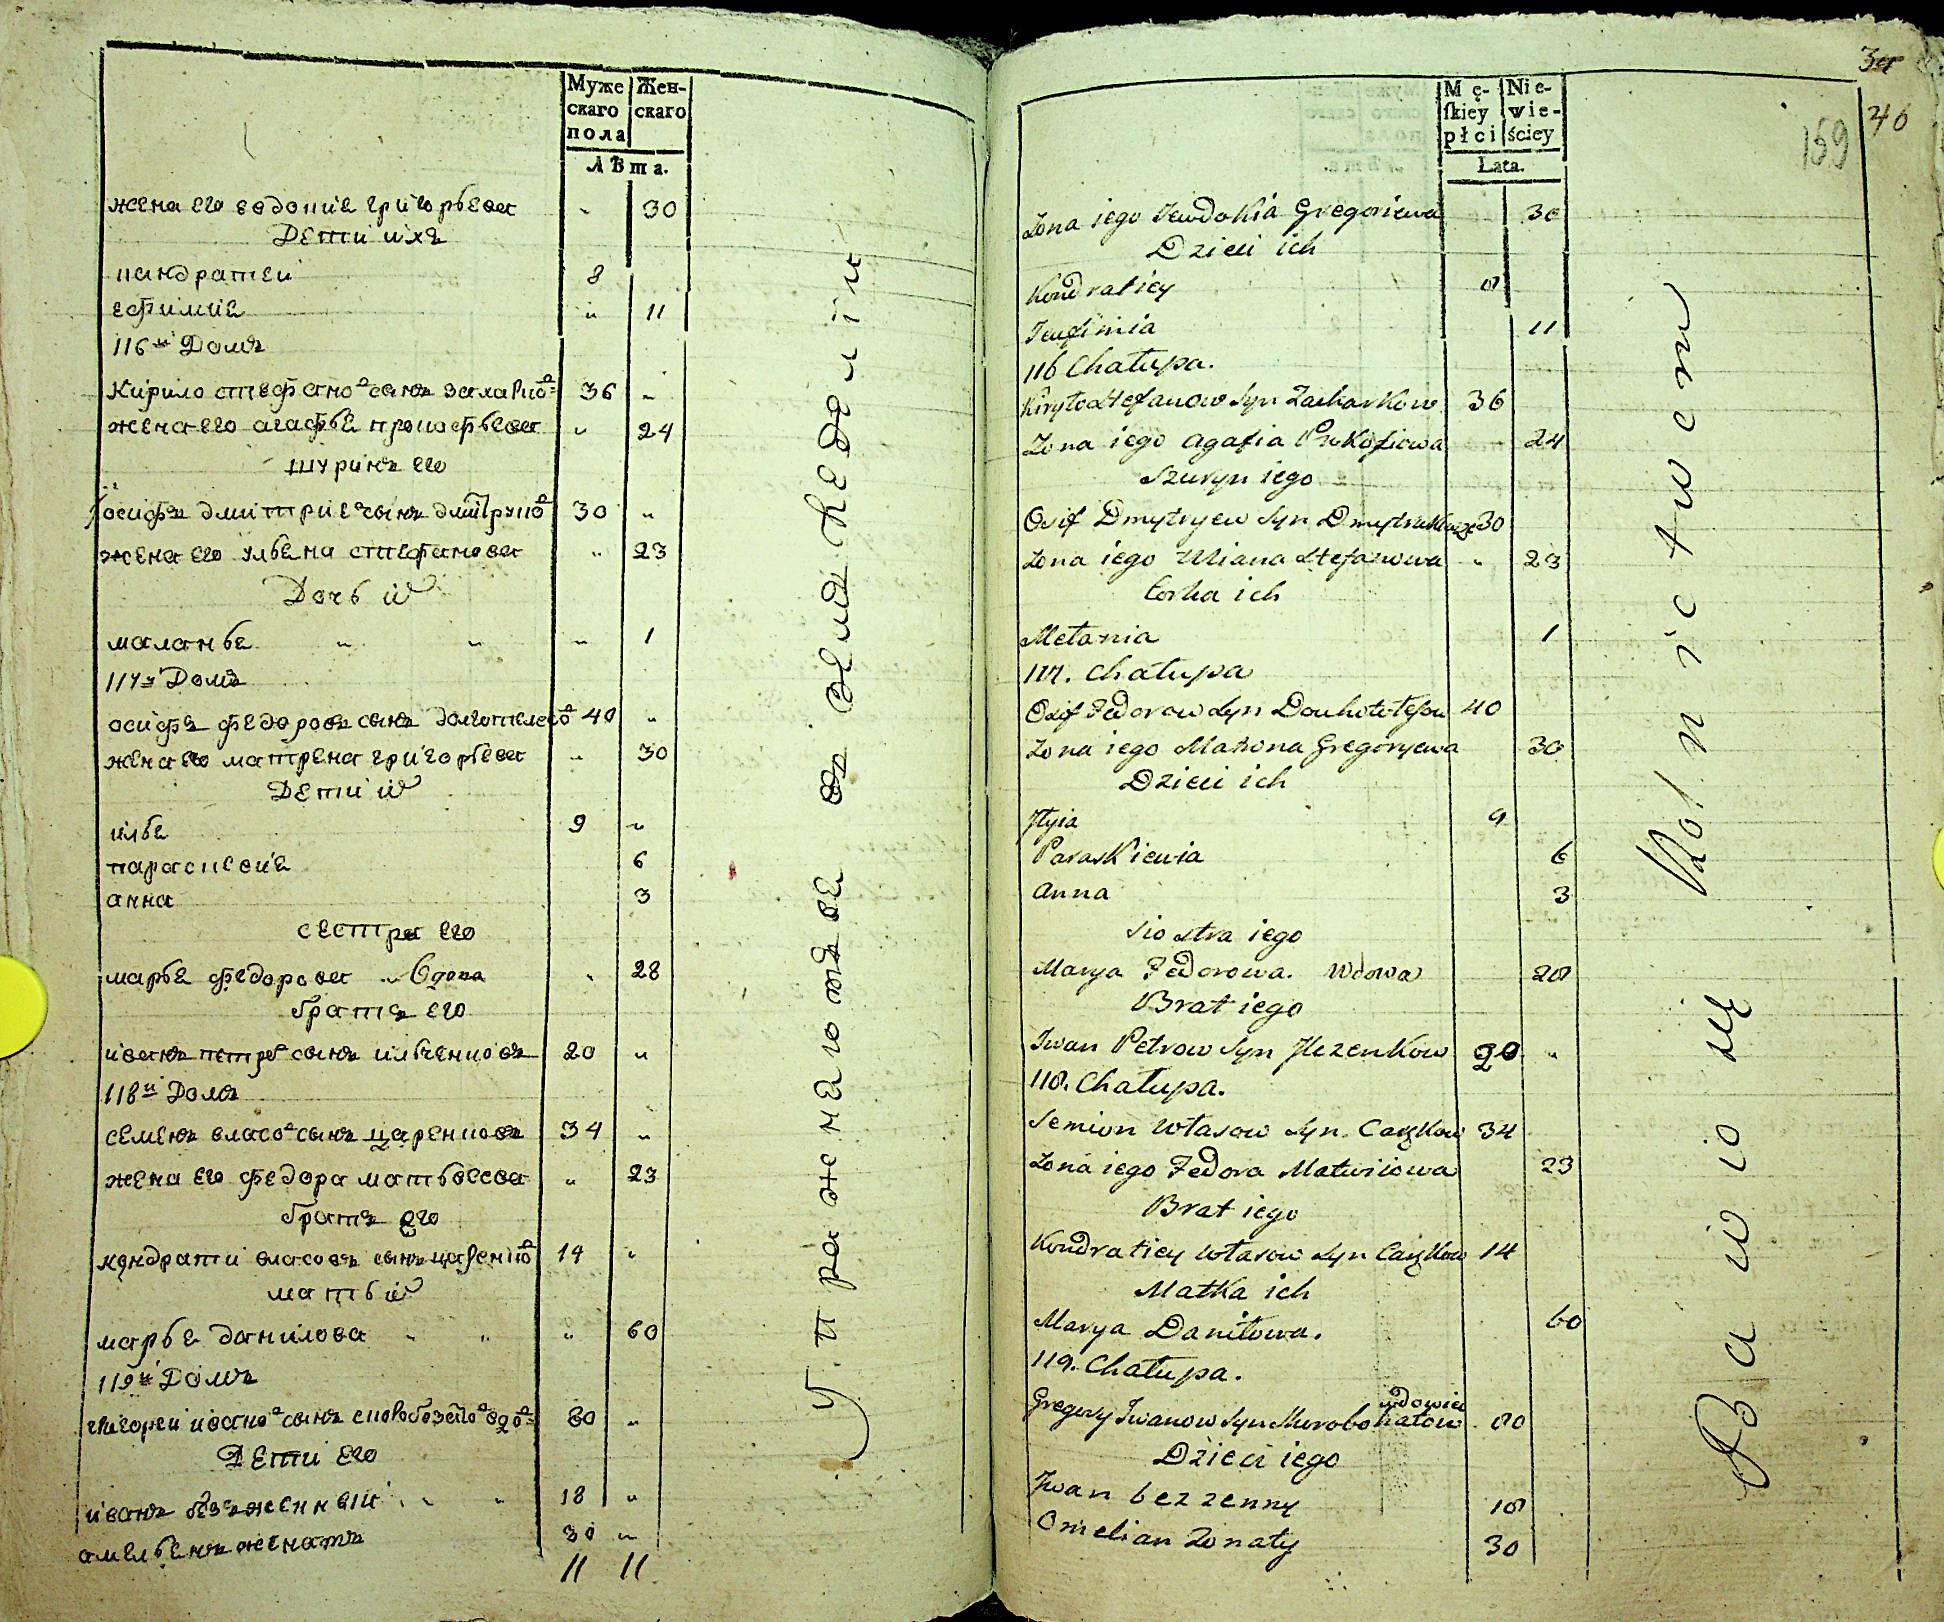 Муже Жен-
скаго скаго
пола
Лѣта.
жена его евдокиѣ григорьева 30
Дети ихъ
кандратеи 8
ефимиѣ 11
116й Домъ
Кирило стефано сынъ захарко 36
жена его агафьѣ прокофьева 24
шуринъ его
іосифъ дмитрие сынъ дмитруко 30
жена его ульѣна стефанова 23
Дочь и
маланьѣ 1
117й Домъ
осифъ федоровъ сынъ долготелесо 40
жена его матрена григорьева 30
Дети и
ильѣ 9
параскевиѣ 6
анна 3
сестра его
марьѣ федорова Вдова 28
братъ его
иванъ петро сынъ ильченковъ 20
118й Домъ
семенъ власо сынъ царенковъ 34
жена его федора матвеева 23
братъ его
кондрати власовъ сынъ царенко 14
мать и
марьѣ данилова 60
119й Домъ
григореи ивано сынъ вдо 80
Дети его
иванъ безженныи 18
амельѣнъ женатъ 30
11 11
Упражнаютъ въ земледелии
34
46
159
Mę- Nie-
ſkiey wie-
płci ściey
Lata.
Zona iego Jewdokia Gregoriewa 30
Dzieci ich
Kondratiey 8
Jeufimia 11
116 Chałupa.
Kiryło Stefanow Syn Zacharkow 36
Zona iego Agafia Prokofiowa 24
Szuryn iego
Osif Dmytryew Syn Dmytruków 30
Zona iego Uliana Stefanowa 23
Corka ich
Mełania 1
117. Chałupa
Osif Fedorow Syn Douhotelesow 40
Zona iego Matrona Gregoryewa 30
Dzieci ich
Jlyia 9
Paraskiewia 6
Anna 3
Siostra iego
Marya Fedorowa. Wdowa 28
Brat iego
Jwan Petrow Syn Jlczenkow 20
118. Chałupa.
Semion Własow Syn Carykow 34
Zona iego Fedora Matwiiowa 23
Brat iego
Kondratiey Własow Syn Carykow 14
Matka ich
Marya Daniłowa. 60
119. Chałupa.
wdowiec
Gregory Jwanow Syn Murobohatow 80
Dzieci iego
Jwan bezzenny 18
Omelian Zonaty 30
Bawio się Rolnictwem